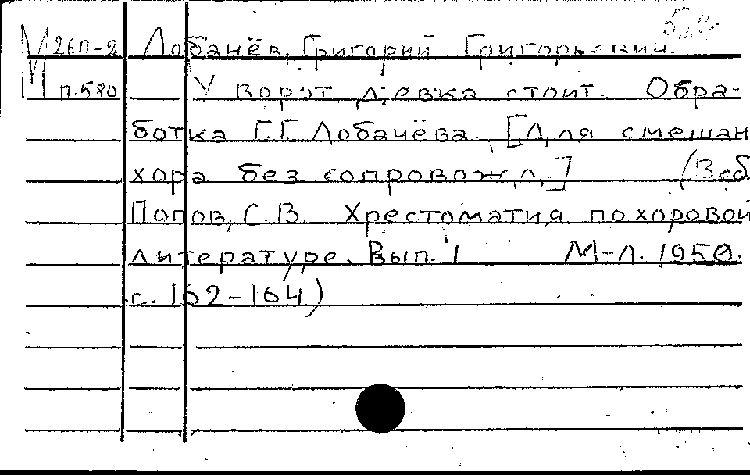 М 26П-2 Лобачёв, Григорий Григорьевич.
М п.580 У ворот девка стоит. Обра-
ботка Г.Г. Лобачёва. [Для смешан
хора без сопровожд.] (В сб
Попов, С.В. Хрестоматия по хоровой
литературе. Вып. 1 М-Л. 1950.
с. 162-164)